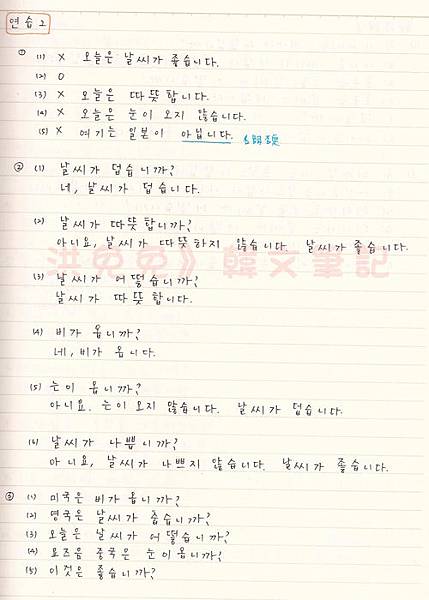 연습 2
① (1) X 오늘은 날씨가 좋습니다.
(2) O
(3) X 오늘은 따뜻합니다.
(4) X 오늘은 눈이 오지 않습니다.
(5) X 여기는 일본이 아닙니다.
② (1) 날씨가 덥습니까?
네, 날씨가 덥습니다.
(2) 날씨가 따뜻합니까?
아니요, 날씨가 따뜻하지 않습니다. 날씨가 좋습니다.
洪兔兔》韓文筆記
(3) 날씨가 어떻습니까?
날씨가 따뜻합니다.
(4) 비가 옵니까?
네, 비가 옵니다.
(5) 눈이 옵니까?
아니요. 눈이 오지 않습니다. 날씨가 덥습니다.
(6) 날씨가 나쁩니까?
아니요, 날씨가 나쁘지 않습니다. 날씨가 좋습니다.
③ (1) 미국은 비가 옵니까?
(2) 영국은 날씨가 춥습니까?
(3) 오늘은 날씨가 어떻습니까?
(4) 요즈음 중국은 눈이 옵니까?
(5) 이것은 좋습니까?